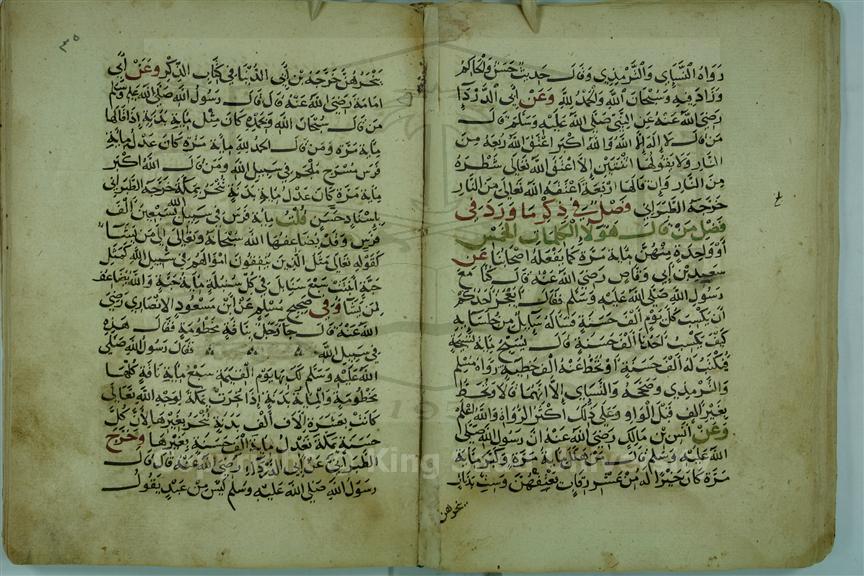 رواه النساي والترمذي وقال حديث حسن والحاكم
وزاد فيه وسبحان الله والحمد لله وعن أبي الدردا
رضي الله عنه عن النبي صلى الله عليه وسلم قال
من قال لا اله الا الله والله اكبر اعتق الله ربعه من
النار ولا يقولها اثنتين الا اعتق الله تعالى شطره
من النار وان قالها اربعة اعتقه الله تعالى من النار
خرجه الطبراني فصل في ذكر ما ورد في
فضل من قال هولاء الكلمات الخمس
أو واحدة منهن ماية مرة كما يفعله اصحابنا عن
سعد بن أبي وقاص رضي الله عنه قال كنا مع
رسول الله صلى الله عليه وسلم فقال أيعجز احدكم
ان يكتب كل يوم ألف حسنة فساله سايل من جلسايه
كيف يكتب احدنا ألف حسنة قال يسبح ماية تسبيحة
فيكتب له الف حسنة او يحط عنه الف خطية رواه مسلم
والترمذي وصححه والنساي الا انهما قالا ويحط
بغير الف قبل الواو وعلى ذلك اكثر الرواة والله اعلم
وعن انس بن مالك رضي الله عنه ان رسول الله صلى
الله عليه وسلم قال من هلل ماية مرة وكبر ماية
مرة كان خيرا له من عشر رقاب يعتقهن وست بدنات
ينحرهن
٣٥
ينحرهن خرجه بن ابي الدنيا في كتاب الذكر وعن أبي
امامة رضي الله عنه قال قال رسول الله صلى الله عليه وسلم
من قال سبحان الله وبحمده كان مثل ماية بدنة اذا قالها
ماية مرة ومن قال الحمد لله ماية مرة كان عدل ماية
فرس مسرج ملجم في سبيل الله ومن قال الله اكبر
ماية مرة كان عدل ماية بدنة تنحر بمكة خرجه الطبراني
باسناد حسن قلت ماية فرس في سبيل الله بسبعين ألف
فرس وقد يضاعفها الله سبحانه وتعالى الى من يشا
كقوله تعالى مثل الذين ينفقون اموالهم في سبيل الله كمثل
حبة انبتت سبع سنابل في كل سنبلة ماية حبة والله يضاعف
لمن يشا وفي صحيح مسلم عن أبن مسعود الانصاري رضي
الله عنه قال جا رجل بناقة مخطومة فقال هذه
في سبيل الله فقال رسول الله صلى
الله عليه وسلم لك بها يوم القيمة سبع ماية ناقة كلها
مخطومة والماية بدنة اذا نحرت بمكة لوجه الله تعالى
كانت بعشرة الاف ألف بدنة تنحر بغيرها لأن كل
حسنة بمكة تعدل ماية الف حسنة بغيرها وخرج
الطبراني عن أبي الدرداء رضي الله عنه قال قال
رسول الله صلى الله عليه وسلم ليس من عبد يقول